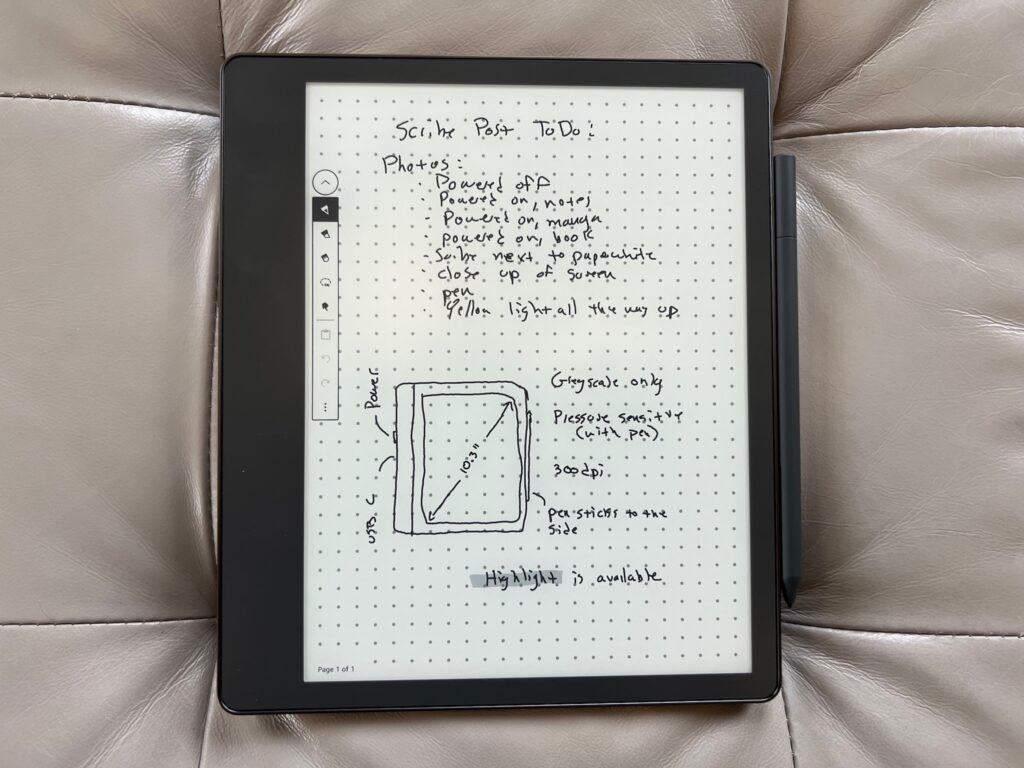 Scribe Post ToDo:
Photos:
· Powered off
· Powered on, notes
- Powered on, manga
powered on, book
- Scribe next to paperwhite
· close up of screen
pen
· Yellow light all the way up
Power
USB C
10.3"
Greyscale only
Pressure sensitive
(with pen)
300dpi
pen sticks to the
side
Highlight is available
Page 1 of 1